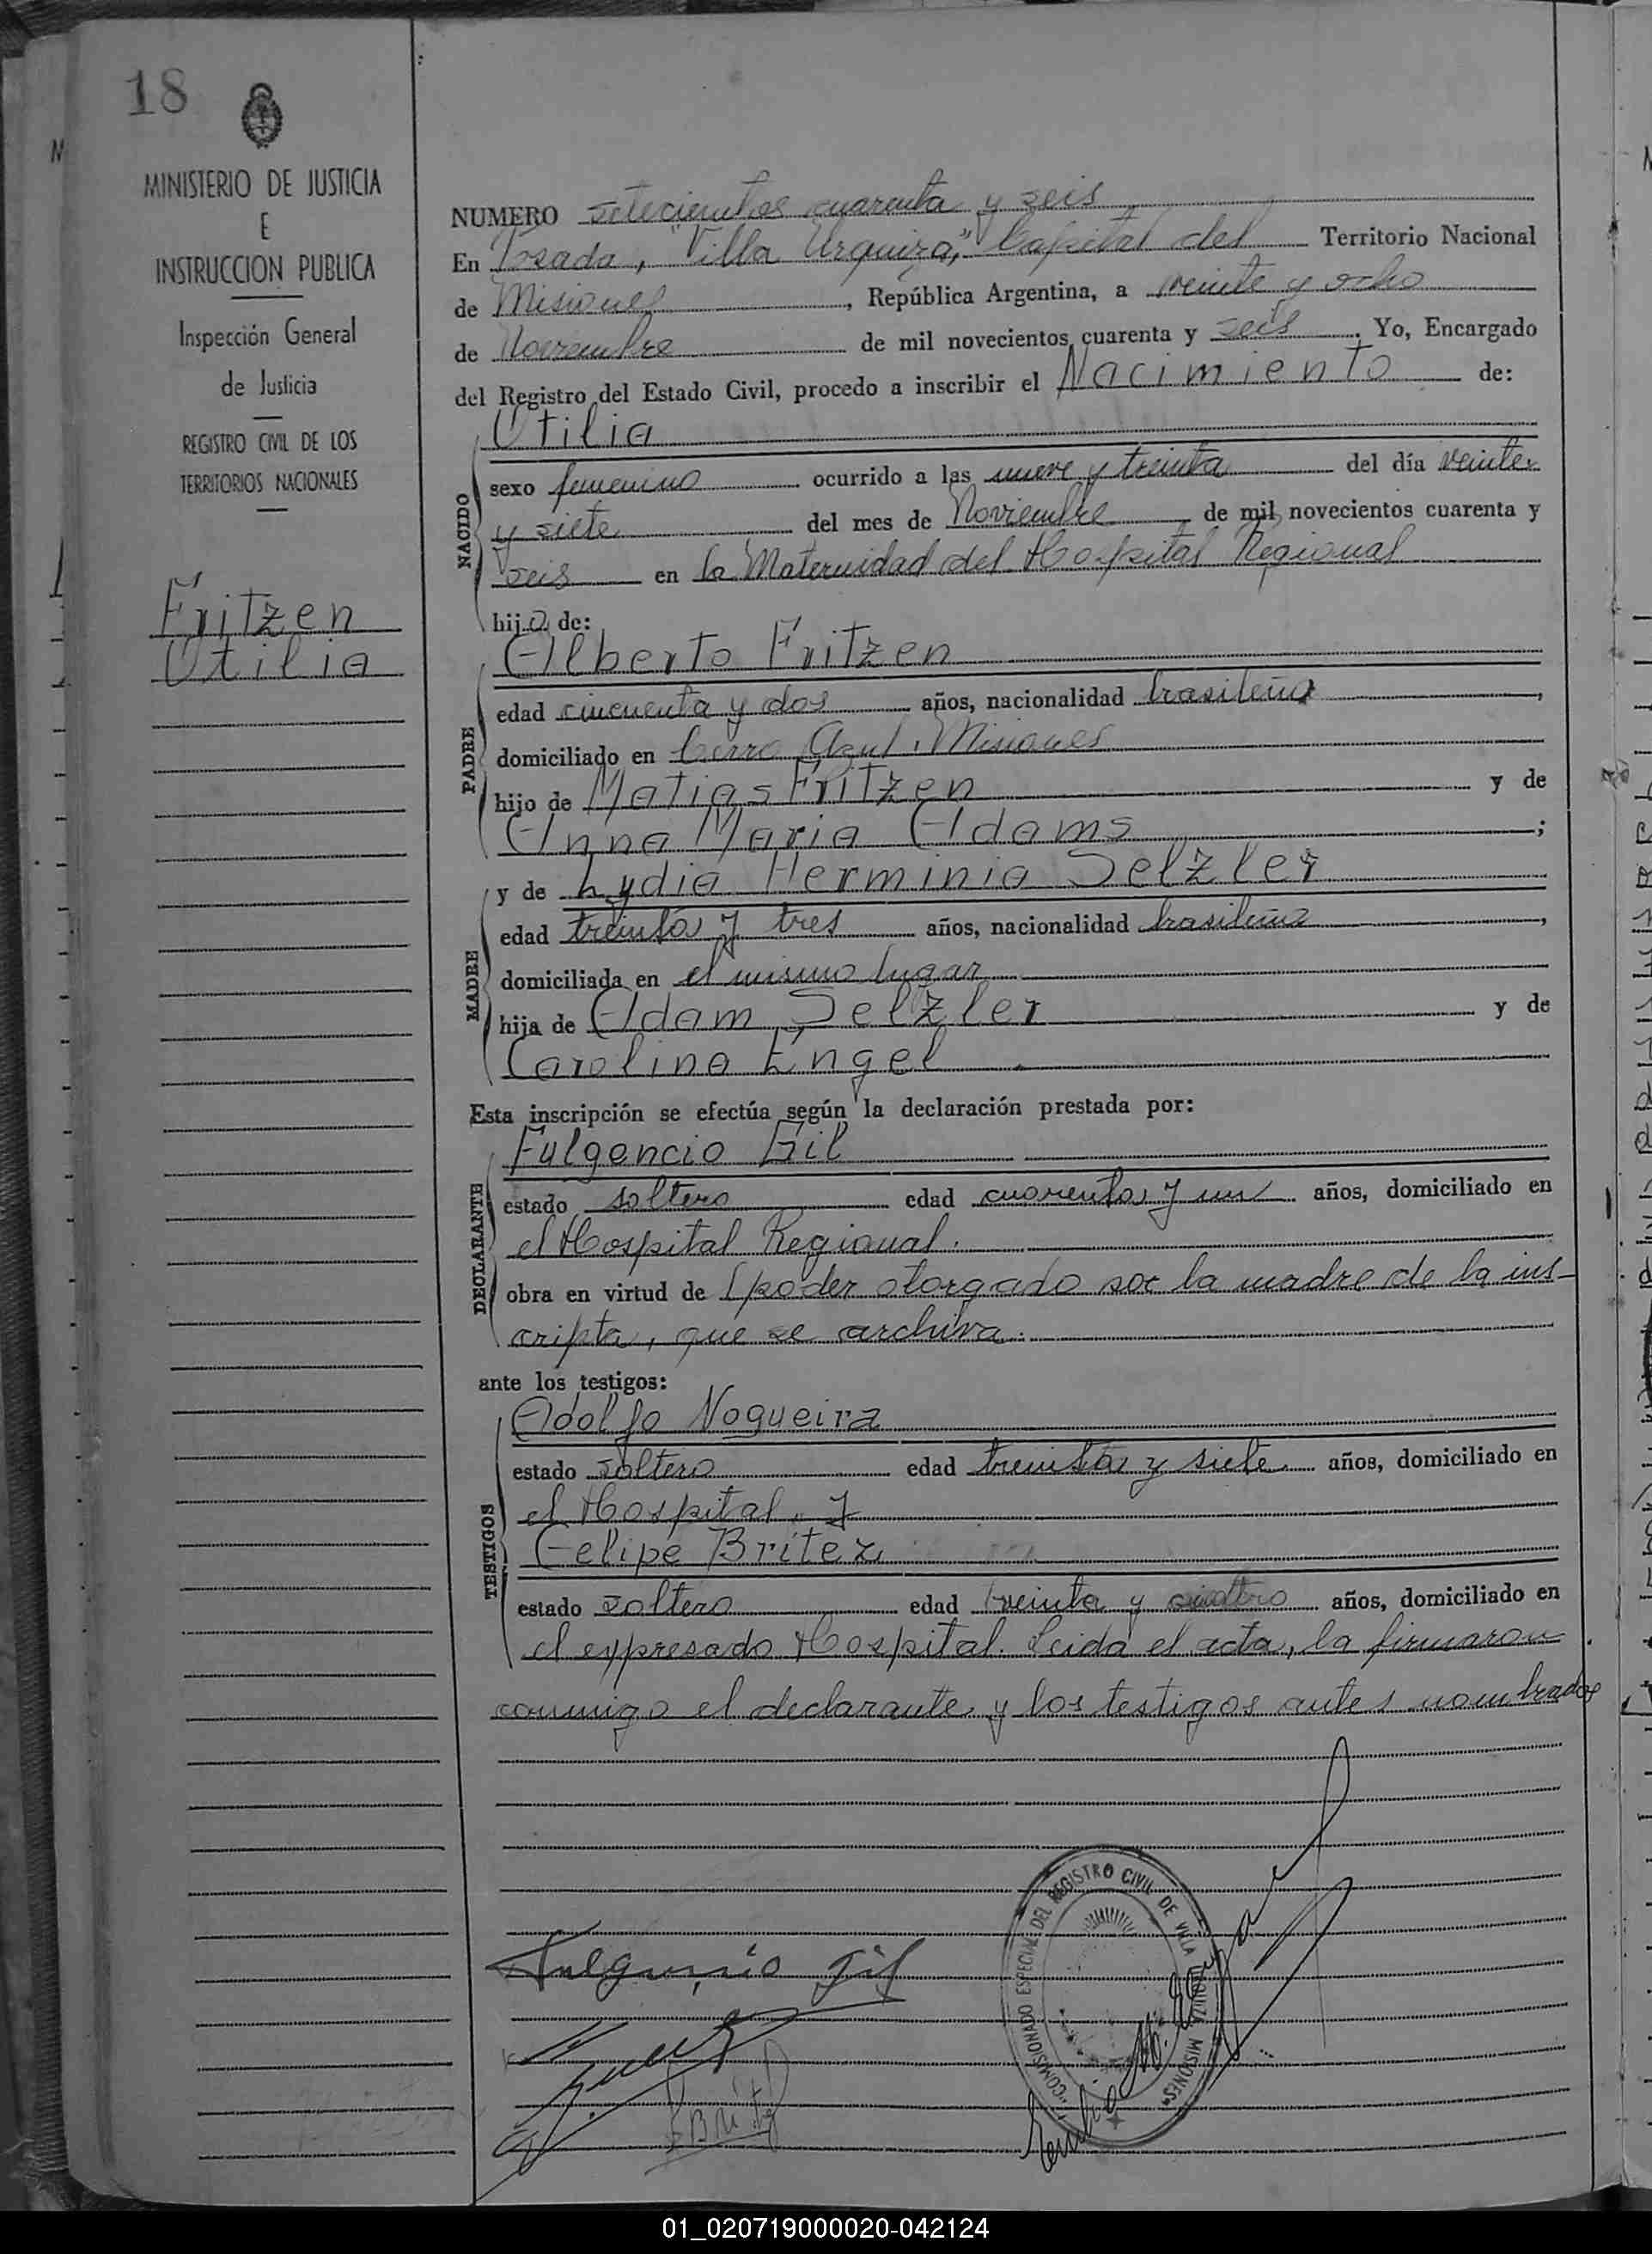 18
MINISTERIO DE JUSTICIA
E
INSTRUCCION PUBLICA
Inspección General
de Justicia
REGISTRO CIVIL DE LOS
TERRITORIOS NACIONALES
Fritzen
Otilia
NUMERO setecientos cuarenta y seis
En Posada, "Villa Urquiza", Capital del Territorio Nacional
de Misiones, República Argentina, a veinte y ocho
de Noviembre de mil novecientos cuarenta y seis. Yo, Encargado
del Registro del Estado Civil, procedo a inscribir el Nacimiento de:
Otilia
NACIDO
sexo femenino ocurrido a las nueve y treinta del día veinte
y siete del mes de Noviembre de mil novecientos cuarenta y
seis en la Maternidad del Hospital Regional
hija de:
Alberto Fritzen
PADRE
edad cincuenta y dos años, nacionalidad brasileña,
domiciliado en Cerro Azul, Misiones
hijo de Matias Fritzen y de
Anna Maria Adams;
y de Lydia Herminia Selzler
MADRE
edad treinta y tres años, nacionalidad brasileña,
domiciliada en el mismo lugar
hija de Adam Selzler y de
Carolina Engel
Esta inscripción se efectúa según la declaración prestada por:
Fulgencio Gil
DECLARANTE
estado soltero edad cuarenta y un años, domiciliado en
el Hospital Regional.
obra en virtud de poder otorgado por la madre de la ins-
cripta, que se archiva.
ante los testigos:
Adolfo Nogueira
TESTIGOS
estado soltero edad treinta y siete años, domiciliado en
el Hospital y
Felipe Britez
estado soltero edad treinta y cuatro años, domiciliado en
el expresado Hospital. Leida el acta, la firmaron
conmigo el declarante y los testigos antes nombrados
Fulgencio Gil
COMISIONADO ESPECIAL DEL REGISTRO CIVIL DE VILLA URQUIZA MISIONES
F Britez
01_020719000020-042124